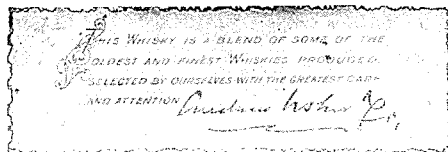 THIS WHISKY IS A BLEND OF SOME OF THE
OLDEST AND FINEST WHISKIES PRODUCED.
SELECTED BY OURSELVES WITH THE GREATEST CARE
AND ATTENTION Andrew Usher & Co.